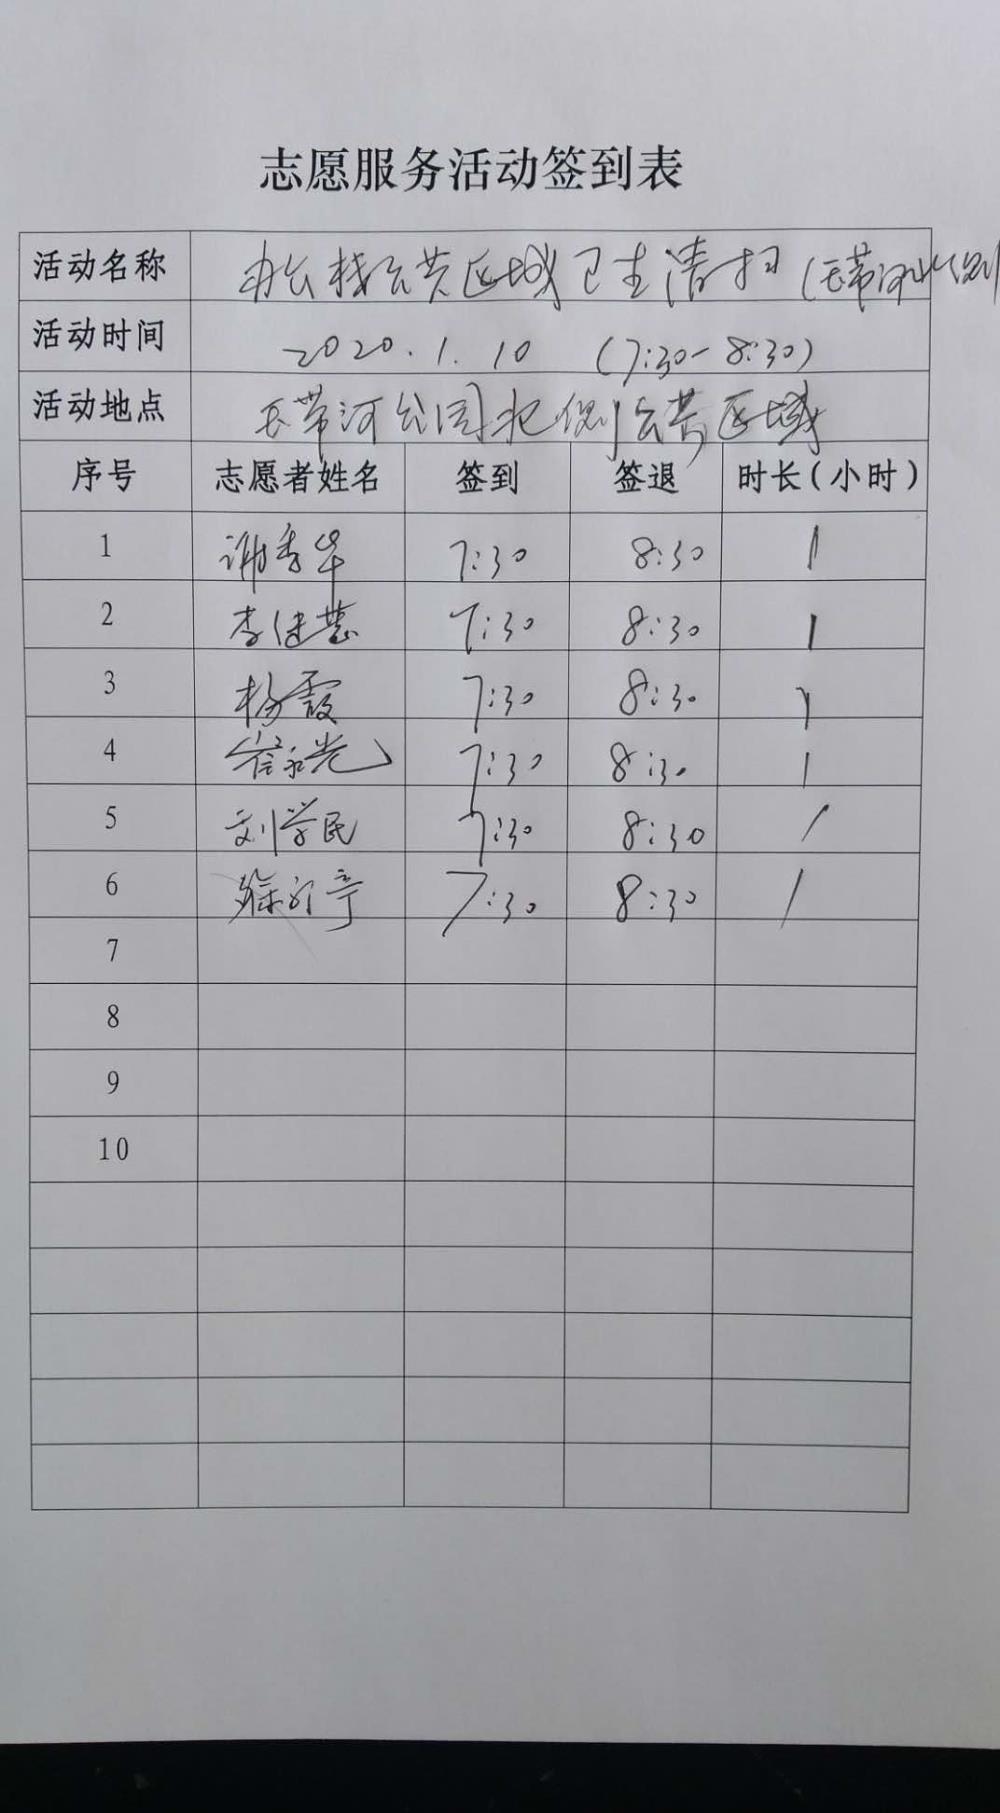 志愿服务活动签到表
活动名称 办公楼公共区域卫生清扫(玉带河北侧
活动时间 2020.1.10 (7:30-8:30)
活动地点 玉带河公园北侧公共区域
序号 志愿者姓名 签到 签退 时长(小时)
1 谢秀华 7:30 8:30 1
2 李健慧 7:30 8:30 1
3 杨霞 7:30 8:30 1
4 7:30 8:30 1
5 刘学民 7:30 8:30 1
6 7:30 8:30 1
7
8
9
10